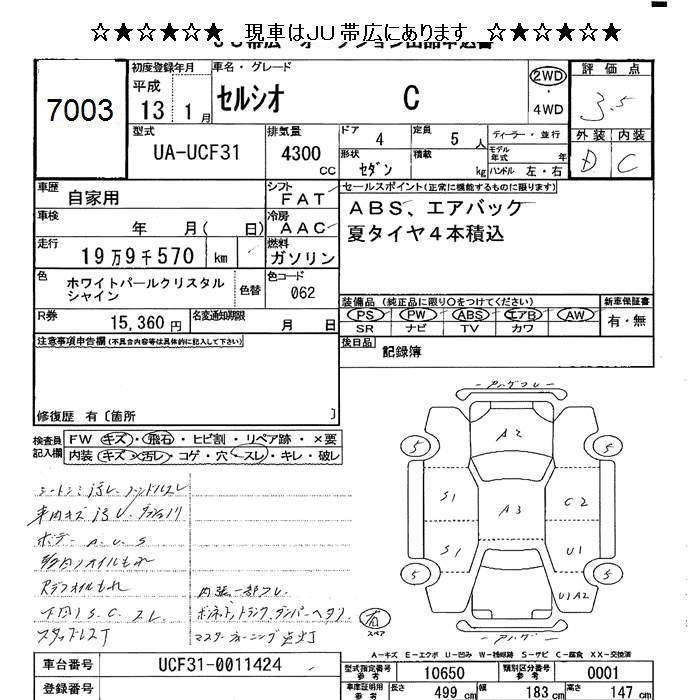 ☆★☆★☆★☆ 現車はJU帯広にあります ☆★☆★☆★☆
7003
初度登録年月
平成
13 1月
車名・グレード
セルシオ C
2WD
・
4WD
評価点
3.5
型式
UA-UCF31
排気量
4300 CC
ドア 4
定員 5人
ディーラー・並行
形状 セダン
積載 kg
モデル年式 年
ハンドル 左・右
外装 内装
D C
車歴 自家用
シフト FAT
セールスポイント(正常に機能するものに限ります)
ABS、エアバック
夏タイヤ4本積込
車検 年 月( 日)
冷房 AAC
走行 19万9千570 km
燃料 ガソリン
色 ホワイトパールクリスタル
シャイン
色替
色コード 062
装備品 (純正品に限り○をつけてください)
PS PW ABS エアB AW
SR ナビ TV カワ
新車保証書
有・無
R券 15,360円
名変通知期限 月 日
注意事項申告欄(不具合内容等は具体的に記入して下さい)
後日品 記録簿
修復歴 有〔箇所 〕
検査員
記入欄
FW キズ・飛石・ヒビ割・リペア跡・×要
内装 キズ・汚レ・コゲ・穴・スレ・キレ・破レ
シートシミ汚レ ハンドルスレ
車内キズ汚レ
ボデー A.U.S
オイルもれ
R デフオイルもれ
下回り S.C. スレ
スタッドレス
内張一部
ボンネット、トランク ダンパーヘタリ
マスターウォーニング点灯
A2
5 5
S1 C2
A3
S1 U1
5 5
U1A2
スペア
A-キズ E-エクボ U-凹み W-補修跡 S-サビ C-腐食 XX-交換済
車台番号 UCF31-0011424
登録番号
型式指定番号 参考 10650
類別区分番号 参考 0001
車庫証明用 参考 長さ 499 cm 幅 183 cm 高さ 147 cm